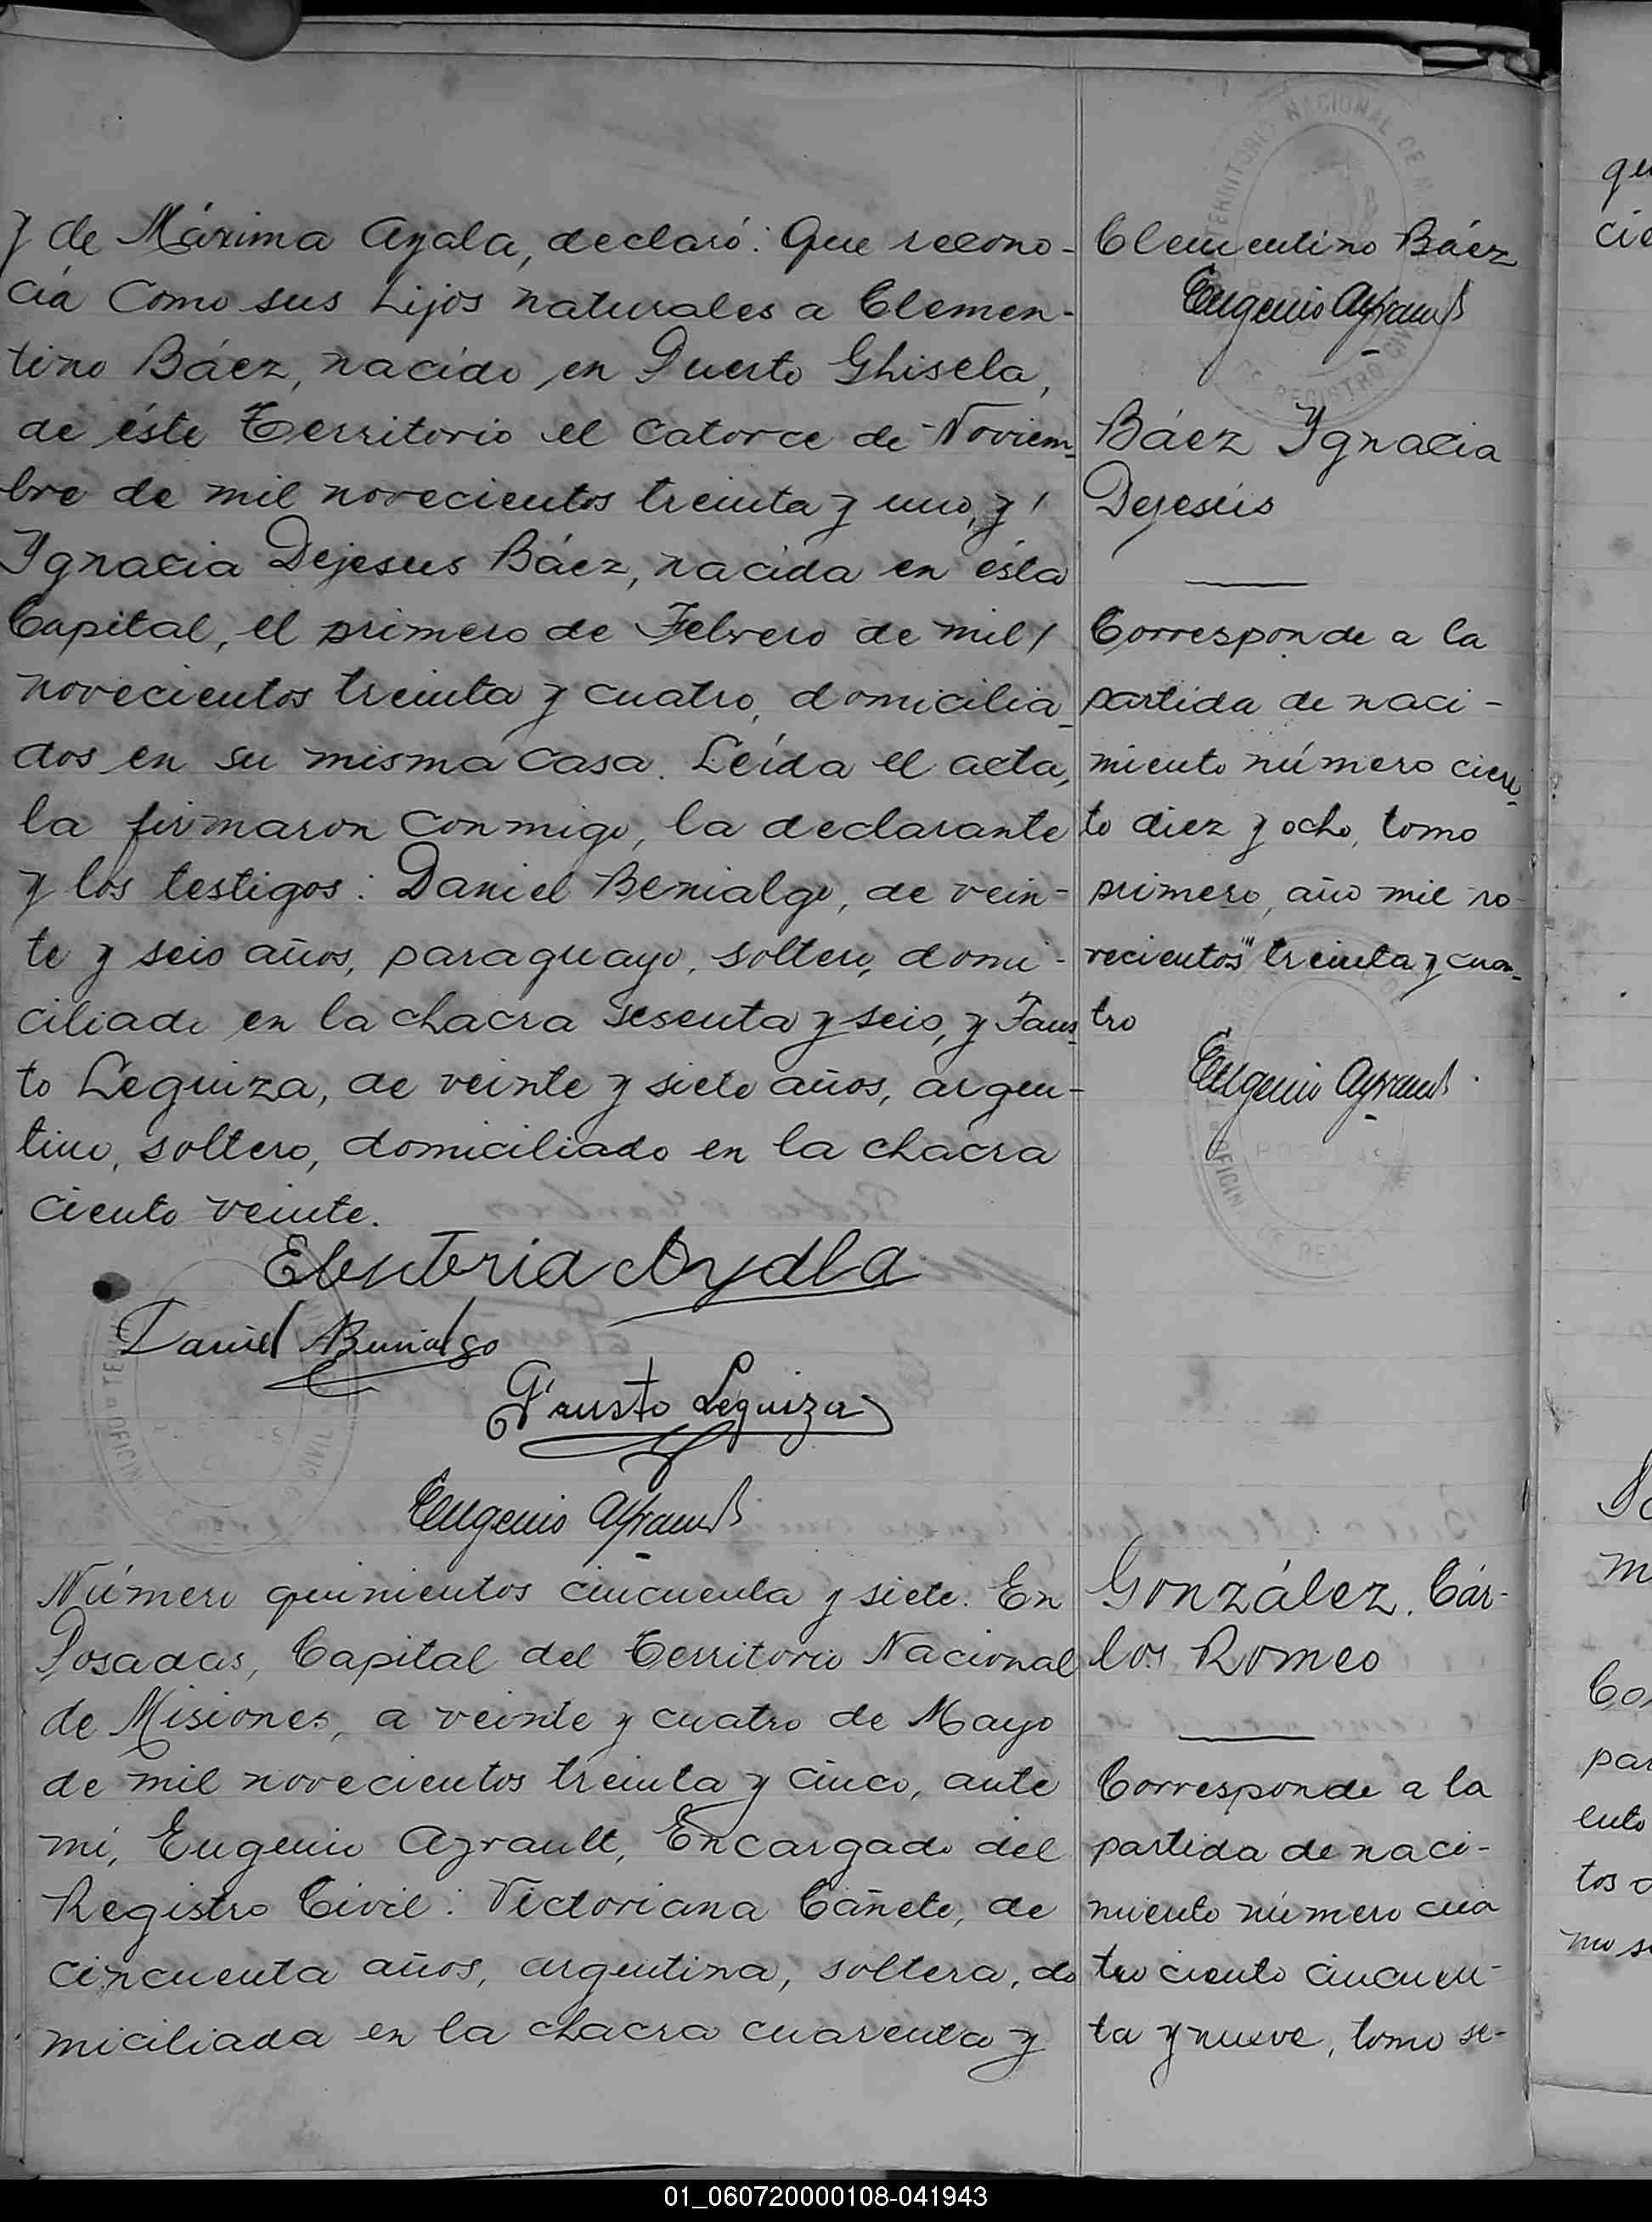 y de Máxima Ayala, declaró: Que recono-
cía como sus hijos naturales a Clemen-
tino Báez, nacido en Puerto Ghisela,
de éste Territorio el catorce de Noviem-
bre de mil novecientos treinta y uno, y/
Ygnacia Dejesus Báez, nacida en ésta
Capital, el primero de Febrero de mil/
novecientos treinta y cuatro, domicilia-
dos en su misma casa. Leída el acta,
la firmaron conmigo, la declarante
y los testigos: Daniel Benialgo, de vein-
te y seis años, paraguayo, soltero, domi-
ciliado en la chacra sesenta y seis, y Faus-
to Leguiza, de veinte y siete años, argen-
tino, soltero, domiciliado en la chacra
ciento veinte.
Eleuteria Ayala
Daniel Benialgo
Fausto Leguiza
Eugenio Ayrault
Número quinientos cincuenta y siete. En
Posadas, Capital del Territorio Nacional
de Misiones, a veinte y cuatro de Mayo
de mil novecientos treinta y cinco, ante
mí, Eugenio Ayrault, Encargado del
Registro Civil: Victoriana Cañete, de
cincuenta años, argentina, soltera, do
miciliada en la chacra cuarenta y
Clementino Báez
Eugenio Ayrault
Báez Ygnacia
Dejesús
Corresponde a la
partida de naci-
miento número cien-
to diez y ocho, tomo
primero, año mil no
vecientos treinta y cua-
tro
Eugenio Ayrault
González, Cár-
los Romeo
Corresponde a la
partida de naci-
miento número cua
tro ciento cincuen-
ta y nueve, tomo se-
TERRITORIO NACIONAL DE
DE REGISTRO CIVIL
OFICIN
POSADAS
OFICIN
CIVIL
qu
cie
m
Co
par
ento
tos
01_060720000108-041943